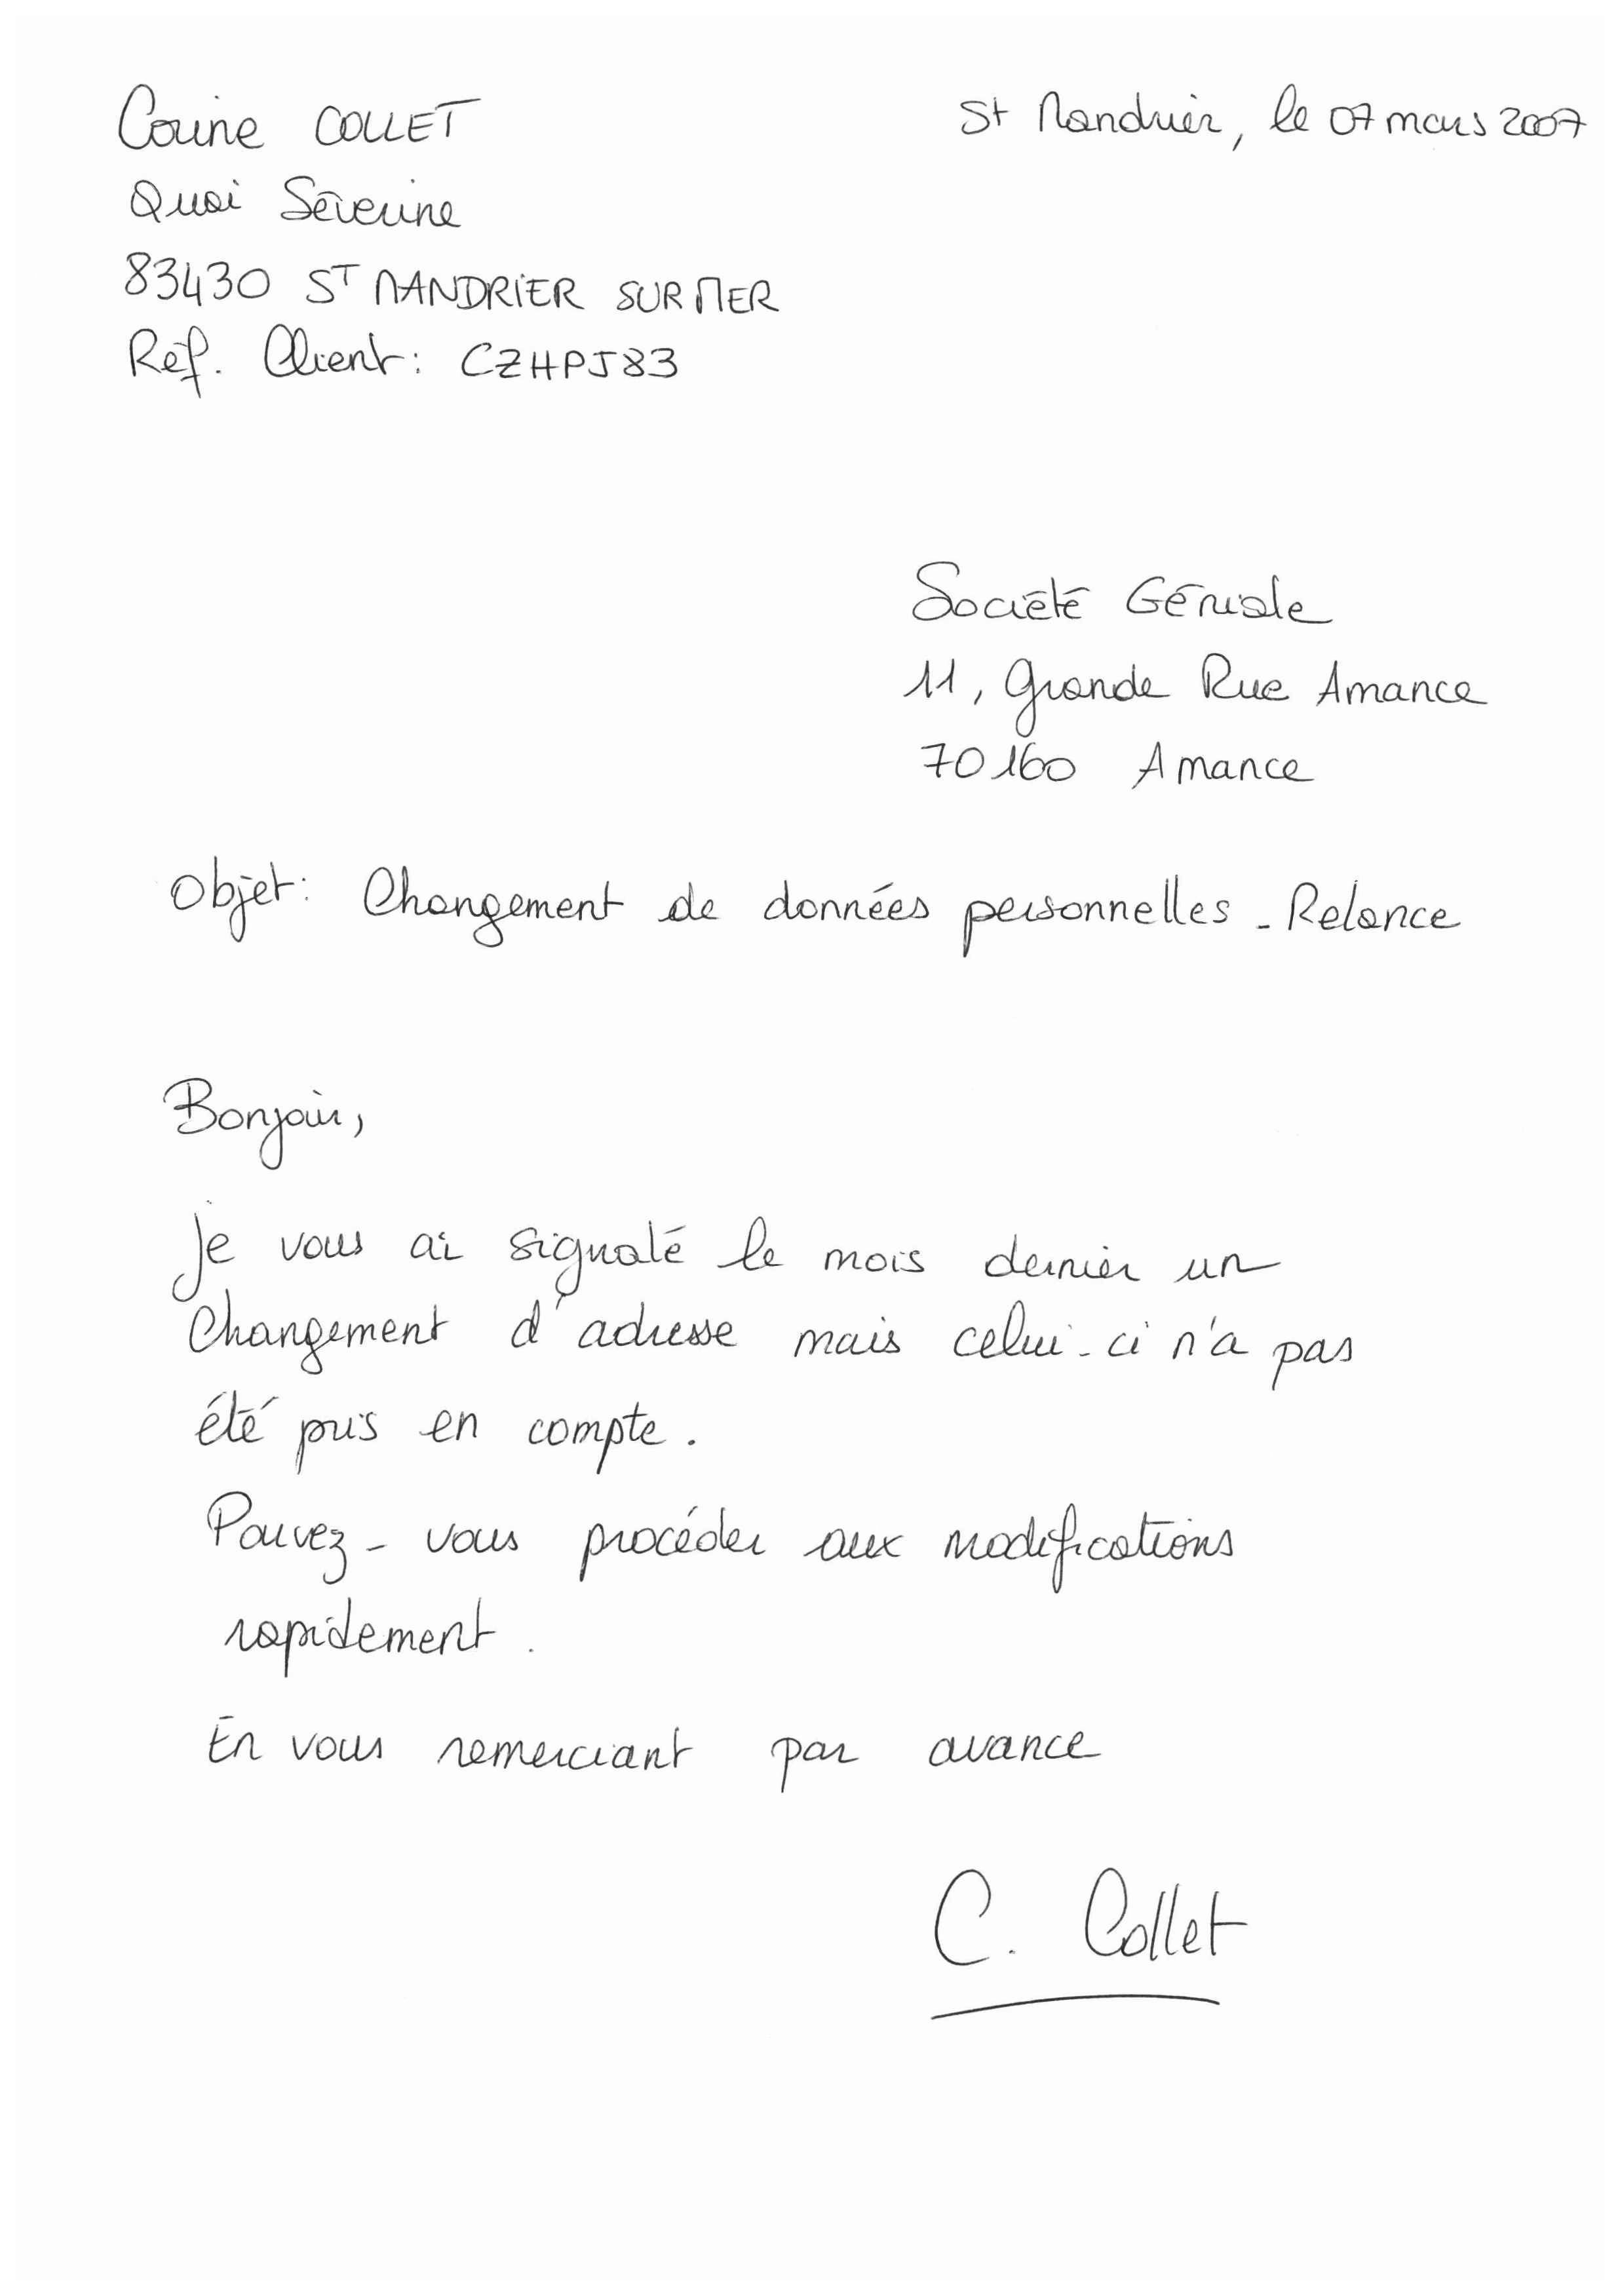 Corine COLLET
St Mandrier, le 07 mars 2007
Quai Séverine
83430 ST MANDRIER SUR MER
Réf. Client : CZHPJ83
Société Géniale
11, Grande Rue Amance
70160 Amance
Objet : Changement de données personnelles - Relance
Bonjour,
Je vous ai signalé le mois dernier un
changement d'adresse mais celui-ci n'a pas
été pris en compte.
Pouvez-vous procéder aux modifications
rapidement.
En vous remerciant par avance
C. Collet